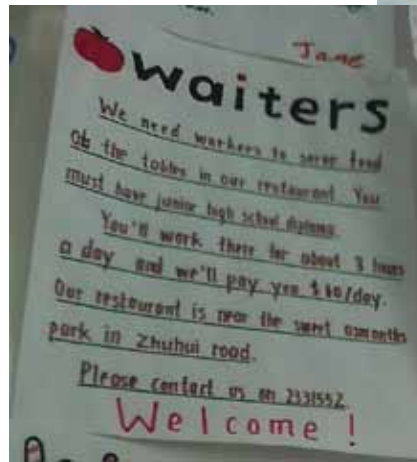 Jane
waiters
We need workers to serve food
at the tables in our restaurant. You
must have junior high school diploma.
You'll work there for about 3 hours
a day and we'll pay you $60/day.
Our restaurant is near the sweet osmanthus
park in Zhuhui road.
Please contact us on 2331552
Welcome!